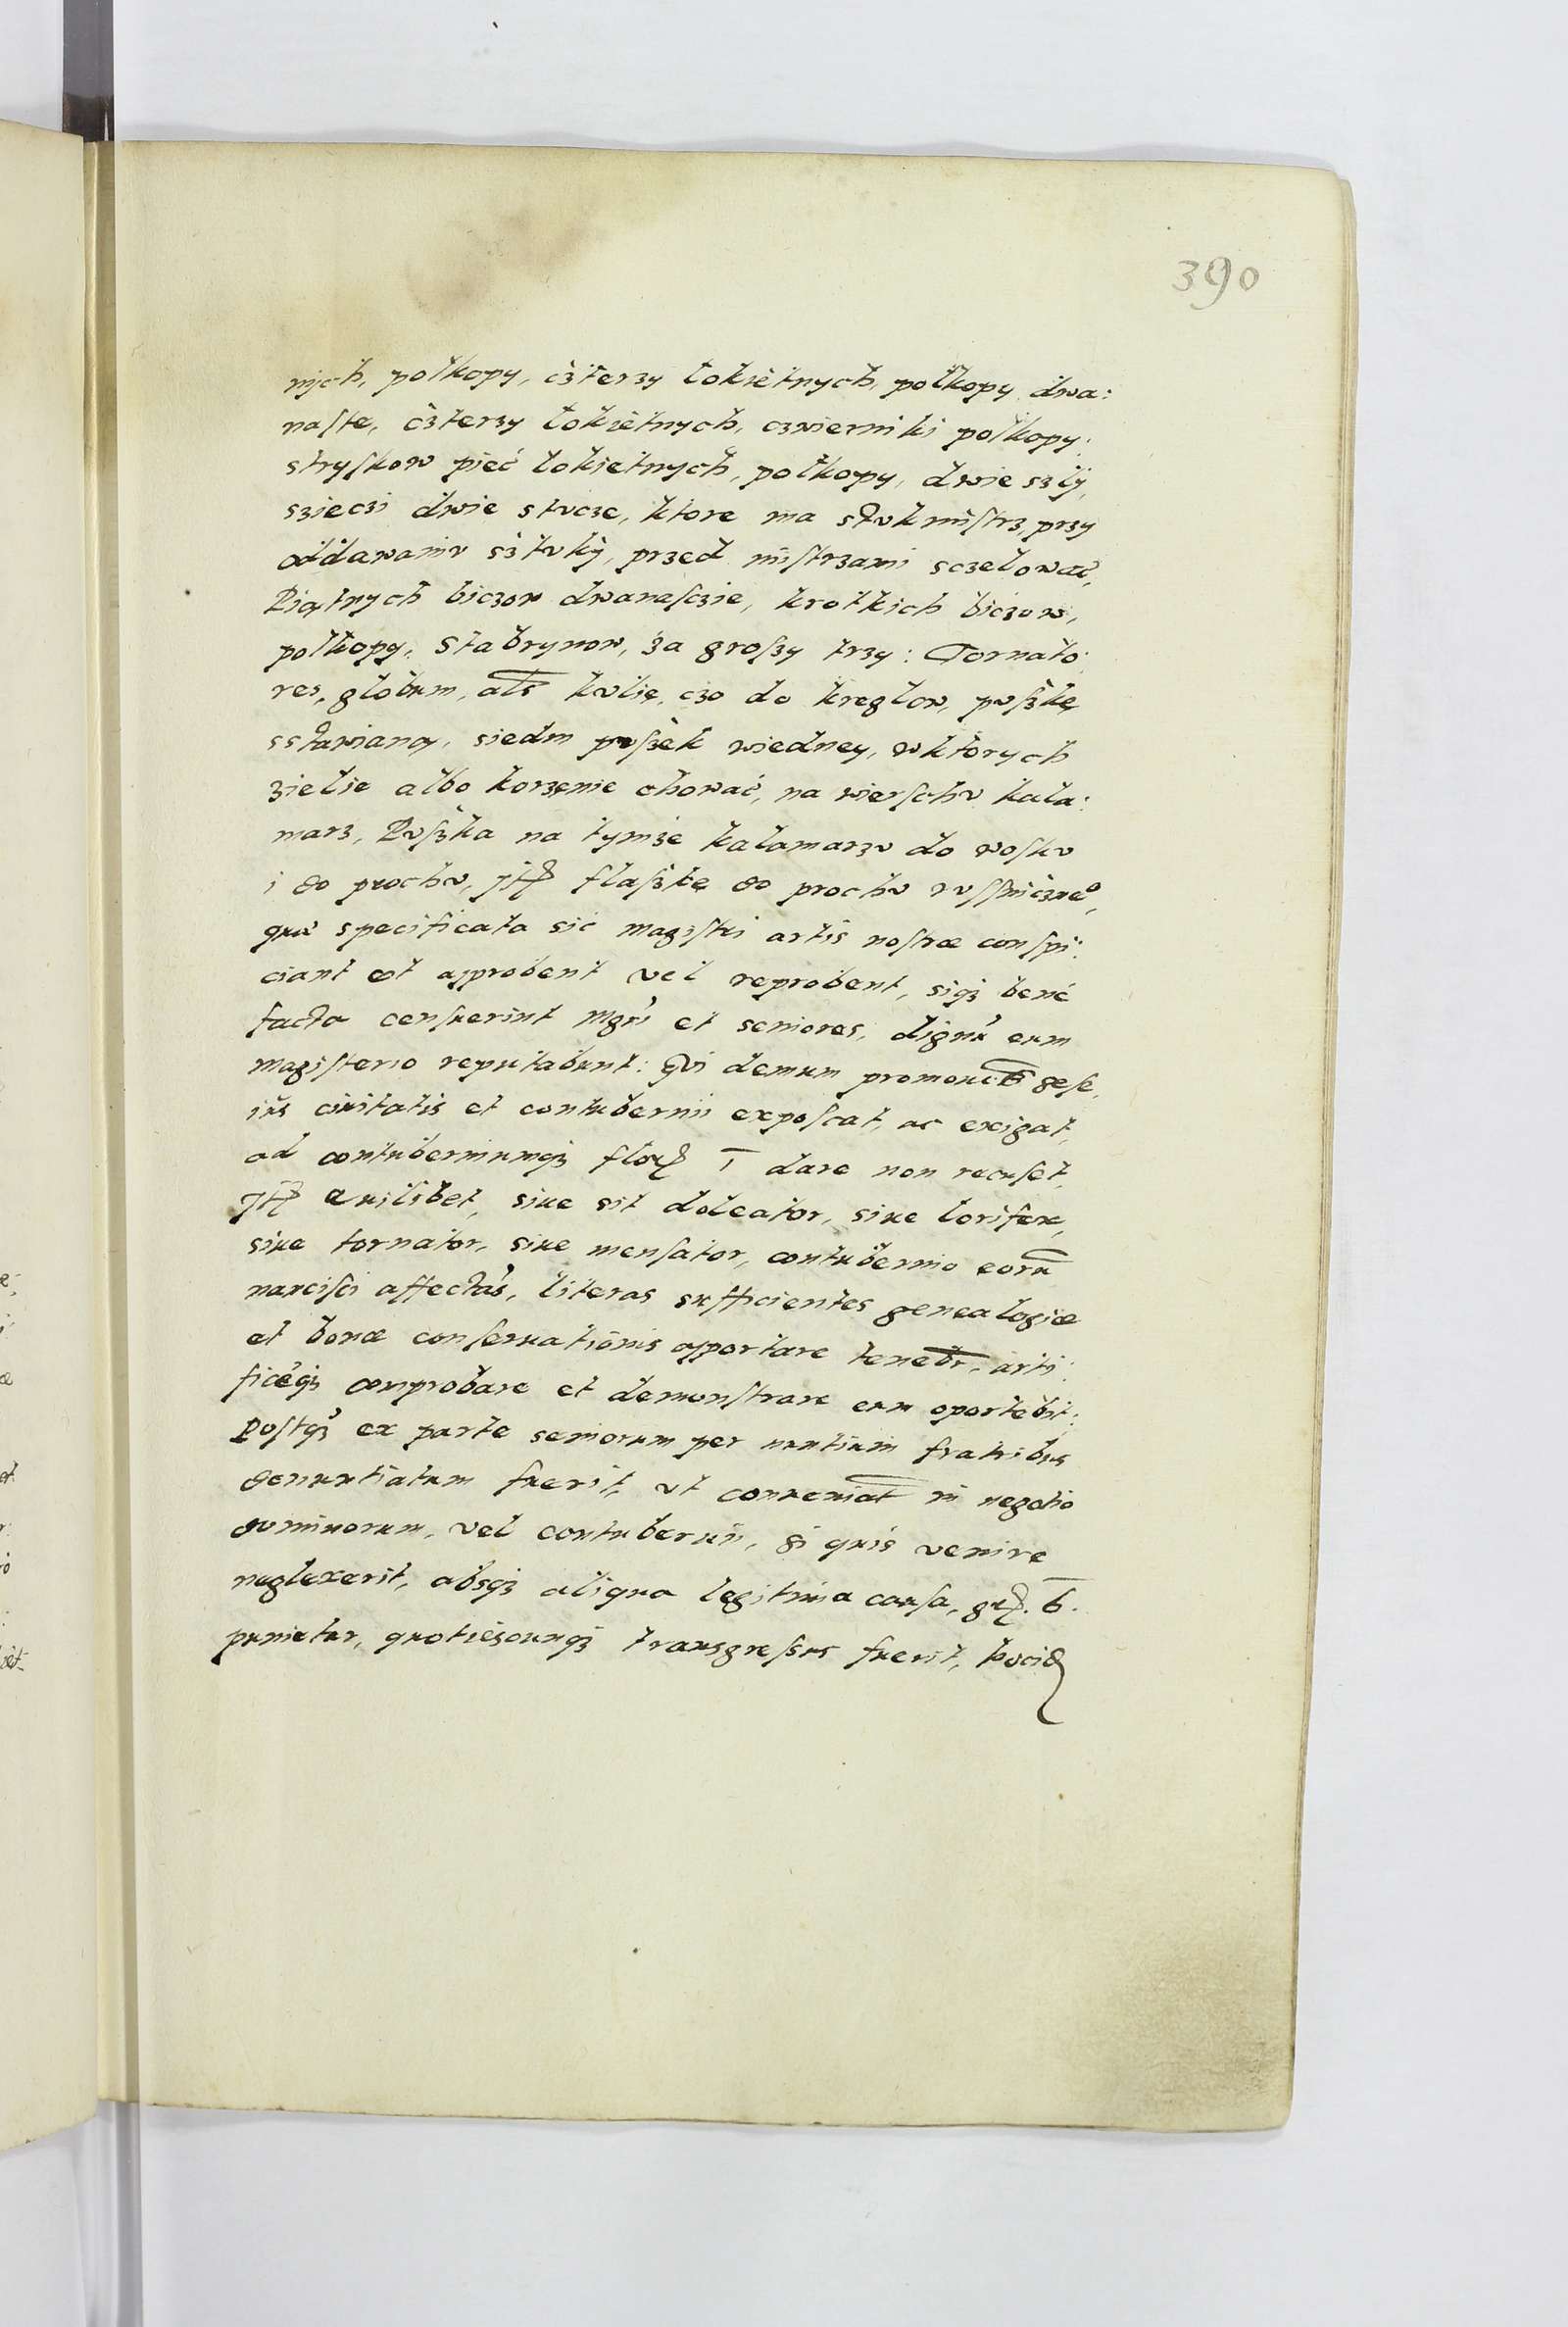 390
nijch, polkopy, cżterzy łokietnych, polkopy dwa:
naſte, cżterzy łokietnych, czwierniki polkopy:
stryſkow pieć łokietnych, polkopy, dwie szlÿ,
szieczi dwie stvcze, ktore ma sztvk miſtrz, przy
oddawaniv sżtvkÿ, przed miſtrzami sczelować,
Piątnych biczow dwanaſczie, krotkich biczow,
polkopy, stabrynow, za groſzy trzy: Tornato:
res, globum, als kvlię, czo do kreglow, pvſzkę
sstawianą, siedm pvſzek wiedney, wktorych
zielie albo korzenie chować, na wierſchv kala:
marz, Pvſżka na tymże kalamarzv do woſkv
i do prochv, Jtē flaſżkę do prochv rvſſnicżne°,
quæ specificata sic magistri artis noſtræ conſpi:
ciant et approbent vel reprobent, siqȝ bene
facta cenſuerint mgrī et seniores, dignū eum
magiſterio reputabunt: Qvi demum
ius ciuitatis et contubernii expoſcat, ac exigat,
ad contuberniumqȝ flor 1 dare non recuſet,
Jtē quilibet, siue sit doleator, siue lorifex,
siue tornator, siue menſator, contubernio eorū
narciſci affectās, literas sufficientes genealogiæ
et bonæ conſeruationis apportare teneбr, arti:
ficēqȝ comprobare et demonſtrare eum oportebit:
Poſtqȝ ex parte seniorum per nuntium fratribus
denuntiatum fuerit, vt conueniāt in negotio
dominorum, vel contubernii, si quis venire
neglexerit, absqȝ aliqua legitima cauſa, gr. 6.
puniatur, quotiescunqȝ transgreſsus fuerit, tocid